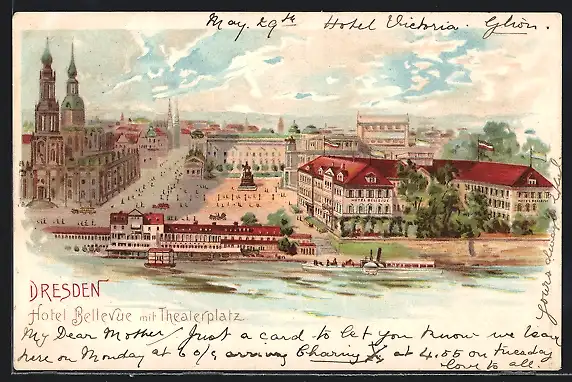 May 29th Hotel Victoria. Glion.
HOTEL BELLEVUE
DRESDEN
Hotel Bellevue mit Theaterplatz.
My Dear Mother / Just a card to let you know we leave
here on Monday at 6 o/c arriving Charing X at 4.55 on Tuesday
love to all.
Yours